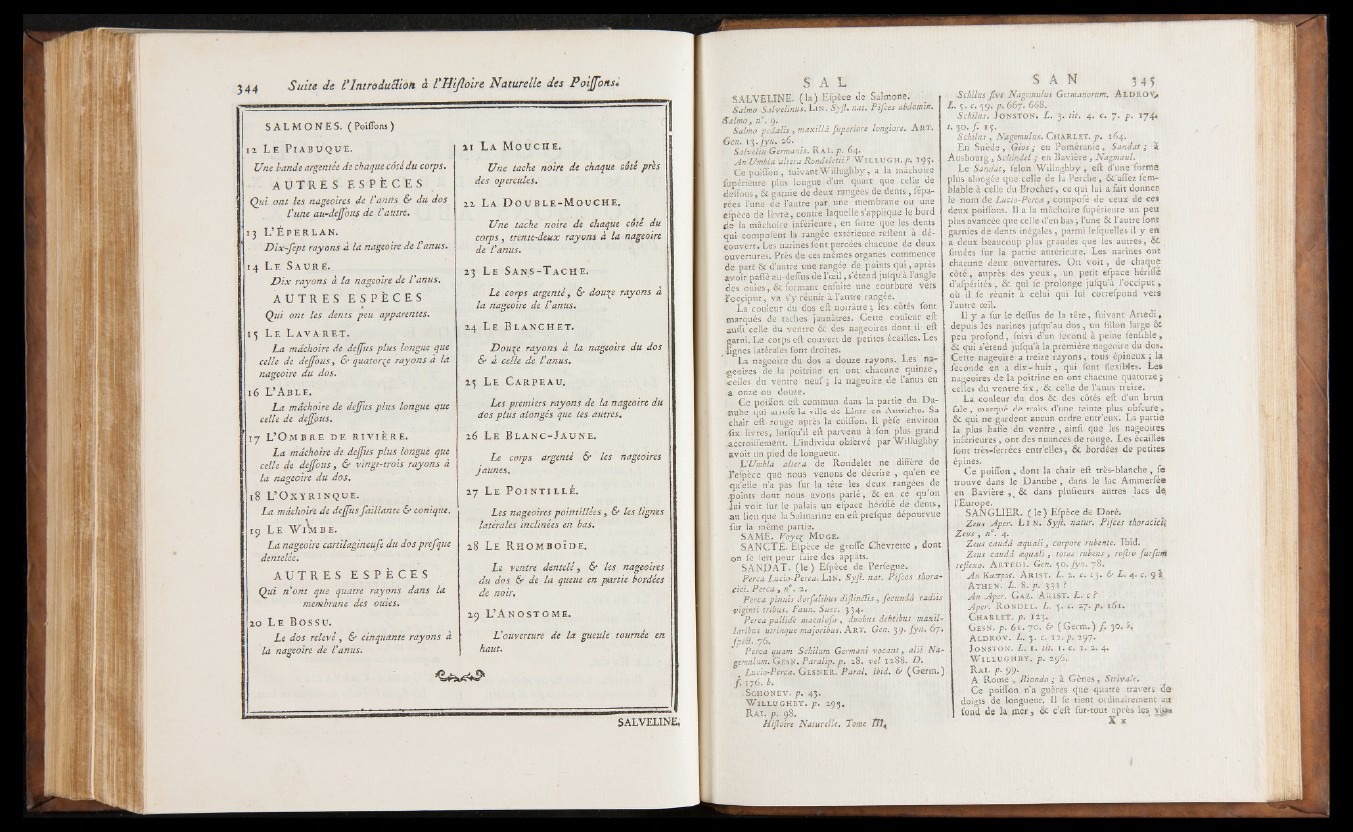 344 Suite de l'Introduction à l'Histoire Naturelle des Poissons.
SALMONES. (Poissons)
12 LE PIABUQUE.
Une bande argentée de chaque côté du corps.
AUTRES ESPÈCES
Qui ont les nageoires de l'anus & du dos
l'une au-dessous de l'autre.
13 L'ÉPERLAN.
Dix-sept rayons à la nageoire de l'anus.
14 LE SAURE.
Dix rayons à la nageoire de l'anus.
AUTRES ESPÈCES
Qui ont les dents peu apparentes.
15 LE LAVARET.
La mâchoire de dessus plus longue que
celle de dessous, & quatorze rayons à la
nageoire du dos.
16 L'ABLE.
La mâchoire de dessus plus longue que
celle de dessous.
17 L'OMBRE DE RIVIÈRE.
La mâchoire de dessus plus longue que
celle de dessous, & vingt-trois rayons à
la nageoire du dos.
18 L'OXYRINQUE.
La mâchoire de dessus saillante & conique.
19 LE WIMBE.
La nageoire cartilagineuse du dos presque
dentelée.
AUTRES ESPÈCES
Qui n'ont que quatre rayons dans la
membrane des ouies.
20 LE BOSSU.
Le dos relevé, & cinquante rayons à
la nageoire de l'anus.
21 LA MOUCHE.
Une tache noire de chaque côté près
des opercules.
22 LA DOUBLE-MOUCHE.
Une tache noire de chaque côté du
corps, trente-deux rayons à la nageoire
de l'anus.
23 LE SANS-TACHE.
Le corps argenté, & douze rayons à
la nageoire de l'anus.
24 LE BLANCHET.
Douze rayons à la nageoire du dos
& à celle de l'anus.
25 LE CARPEAU.
Les premiers rayons de la nageoire du
dos plus alongés que les autres.
26 LE BLANC-JAUNE.
Le corps argenté & les nageoires
jaunes.
27 LE POINTILLÉ.
Les nageoires pointillées, & les lignes
latérales inclinées en bas.
28 LE RHOMBOÏDE.
Le ventre dentelé, & les nageoires
du dos & de la queue en partie bordées
de noir.
29 L'ANOSTOME.
L'ouverture de la gueule tournée en
haut.
SALVELINE,
SAL
SALVELINE. (la) Espèce de Salmone.
Salmo Salvelinus. LIN. Syst. nat. Pisces abdomin.
Salmo, n°. 9.
Salmo pedalis, maxillâ superiore longiore. ART.
Gen. 13. syn. 26.
Salvelin Germanis. RAI. p. 64.
An Umbla altera Rondeletii? WILLUGH. p. 195.
Ce poisson, suivant Willughby, a la mâchoire
supérieure plus longue d'un quart que celle de
dessous, & garnie de deux rangées de dents, sépa-
rées l'une de l'autre par une membrane ou une
espèce de lèvre, contre laquelle s'applique le bord
de la mâchoire inférieure, en sorte que les dents
qui composent la rangée extérieure restent à dé-
couvert. Les narines sont percées chacune de deux
ouvertures. Près de ces mêmes organes commence
de part & d'autre une rangée de points qui, après
avoir passé au-dessus de l'œil, s'étend jusqu'à l'angle
des ouies, & formant ensuite une courbure vers
l'occiput, va s'y réunir à l'autre rangée.
La couleur du dos est noirâtre; les côtés sont
marqués de taches jaunâtres. Cette couleur est
aussi celle du ventre & des nageoires dont il est
garni. Le corps est couvert de petites écailles. Les
lignes latérales sont droites.
La nageoire du dos a douze rayons. Les na-
geoires de la poitrine en ont chacune quinze,
celles du ventre neuf; la nageoire de l'anus en
a onze ou douze.
Ce poisson est commun dans la partie du Da-
nube qui arrose la ville de Lintz en Autriche. Sa
chair est rouge après la cuisson. Il pèse environ
six livres, lorsqu'il est parvenu à son plus grand
accroissement. L'individu observé par Willughby
avoit un pied de longueur.
L'Umbla altera de Rondelet ne diffère de
l'espèce que nous venons de décrire, qu'en ce
qu'elle n'a pas sur la tête les deux rangées de
points dont nous avons parlé, & en ce qu'on
lui voit sur le palais un espace hérissé de dents,
au lieu que la Salmarine en est presque dépourvue
sur la même partie.
SAME. Voyez MUGE.
SANCTÉ. Espèce de grosse Chevrette, dont
on se sert pour faire des appâts.
SANDAT. (le) Espèce de Persegue.
Perca Lucio-Perca. LIN. Syst. nat. Pisces thora-
cici. Perca, n°. 2.
Perca pinnis dorsalibus distinctis, secundâ radiis
viginti tribus. Faun. Suec. 334.
Perca pallidè maculosa, duobus dentibus maxil-
laribus utrinque majoribus. ART. Gen. 39. syn. 67.
spec. 76.
Perca quam Schilum Germani vocant, alii Na-
gemulum. GESN. Paralip. p. 28. vel 1288. D.
Lucio-Perca. GESNER. Paral. ibid. & (Germ.)
f. 176. b.
SCHONEV. p. 43.
WILLUGHBY. p. 293.
RAI. p. 98.
Histoire Naturelle. Tome III.
SAN 345
Schilus sive Nagomulus Germanorum. ALDROV.
L. 5. c. 59. p. 667. 668.
Schilus. JONSTON. L. 3. tit. 4. c. 7. p. 174.
t. 30. f. 15.
Schilus, Nagemulus. CHARLET. p. 164.
En Suède, Gios; en Poméranie, Sandat; à
Ausbourg, Schindel; en Bavière, Nagmaul.
Le Sandat, selon Willughby, est d'une forme
plus alongée que celle de la Perche, & assez sem-
blable à celle du Brochet, ce qui lui a fait donner
le nom de Lucio-Perca, composé de ceux de ces
deux poissons. Il a la mâchoire supérieure un peu
plus avancée que celle d'en bas; l'une & l'autre sont
garnies de dents inégales, parmi lesquelles il y en
a deux beaucoup plus grandes que les autres, &
situées sur la partie antérieure. Les narines ont
chacune deux ouvertures. On voit, de chaque
côté, auprès des yeux, un petit espace hérissé
d'aspérités, & qui se prolonge jusqu'à l'occiput,
où il se réunit à celui qui lui correspond vers
l'autre œil.
Il y a sur le dessus de la tête, suivant Artedi,
depuis les narines jusqu'au dos, un sillon large &
peu profond, suivi d'un second à peine sensible,
& qui s'étend jusqu'à la première nageoire du dos.
Cette nageoire a treize rayons, tous épineux; la
seconde en a dix-huit, qui sont flexibles. Les
nageoires de la poitrine en ont chacune quatorze;
celles du ventre six, & celle de l'anus treize.
La couleur du dos & des côtés est d'un brun
sale, marqué de traits d'une teinte plus obscure,
& qui ne gardent aucun ordre entr'eux. La partie
la plus basse du ventre, ainsi que les nageoires
inférieures, ont des nuances de rouge. Les écailles
sont très-serrées entr'elles, & bordées de petites
épines.
Ce poisson, dont la chair est très-blanche, se
trouve dans le Danube, dans le lac Ammersée
en Bavière, & dans plusieurs autres lacs de
l'Europe.
SANGLIER. (le) Espèce de Doré.
Zeus Aper. LIN. Syst. natur. Pisces thoracici.
Zeus, n°. 4.
Zeus caudâ æquali, corpore rubente. Ibid.
Zeus caudâ æquali, totus rubens, rostro sursùm
reflexo. ARTEDI. Gen. 50. syn. 78.
An Καπρος. ARIST. L. 2. c. 13. & L. 4. c. 9.
ATHEN. L. 8. p. 331?
An Aper. GAZ. ARIST. L. c?
Aper. RONDEL. L. 5. c. 27. p. 161.
CHARLET. p. 123.
GESN. p. 61. 70. & (Germ.) f. 30. b.
ALDROV. L. 3. c. 12. p. 297.
JONSTON. L. 1. tit. 1. c. 1. 2. 4.
WILLUGHBY. p. 296.
RAI. p. 99.
A Rome, Riondo; à Gènes, Strivale.
Ce poisson n'a guères que quatre travers de
doigts de longueur. Il se tient ordinairement au
fond de la mer, & c'est sur-tout après les
X x